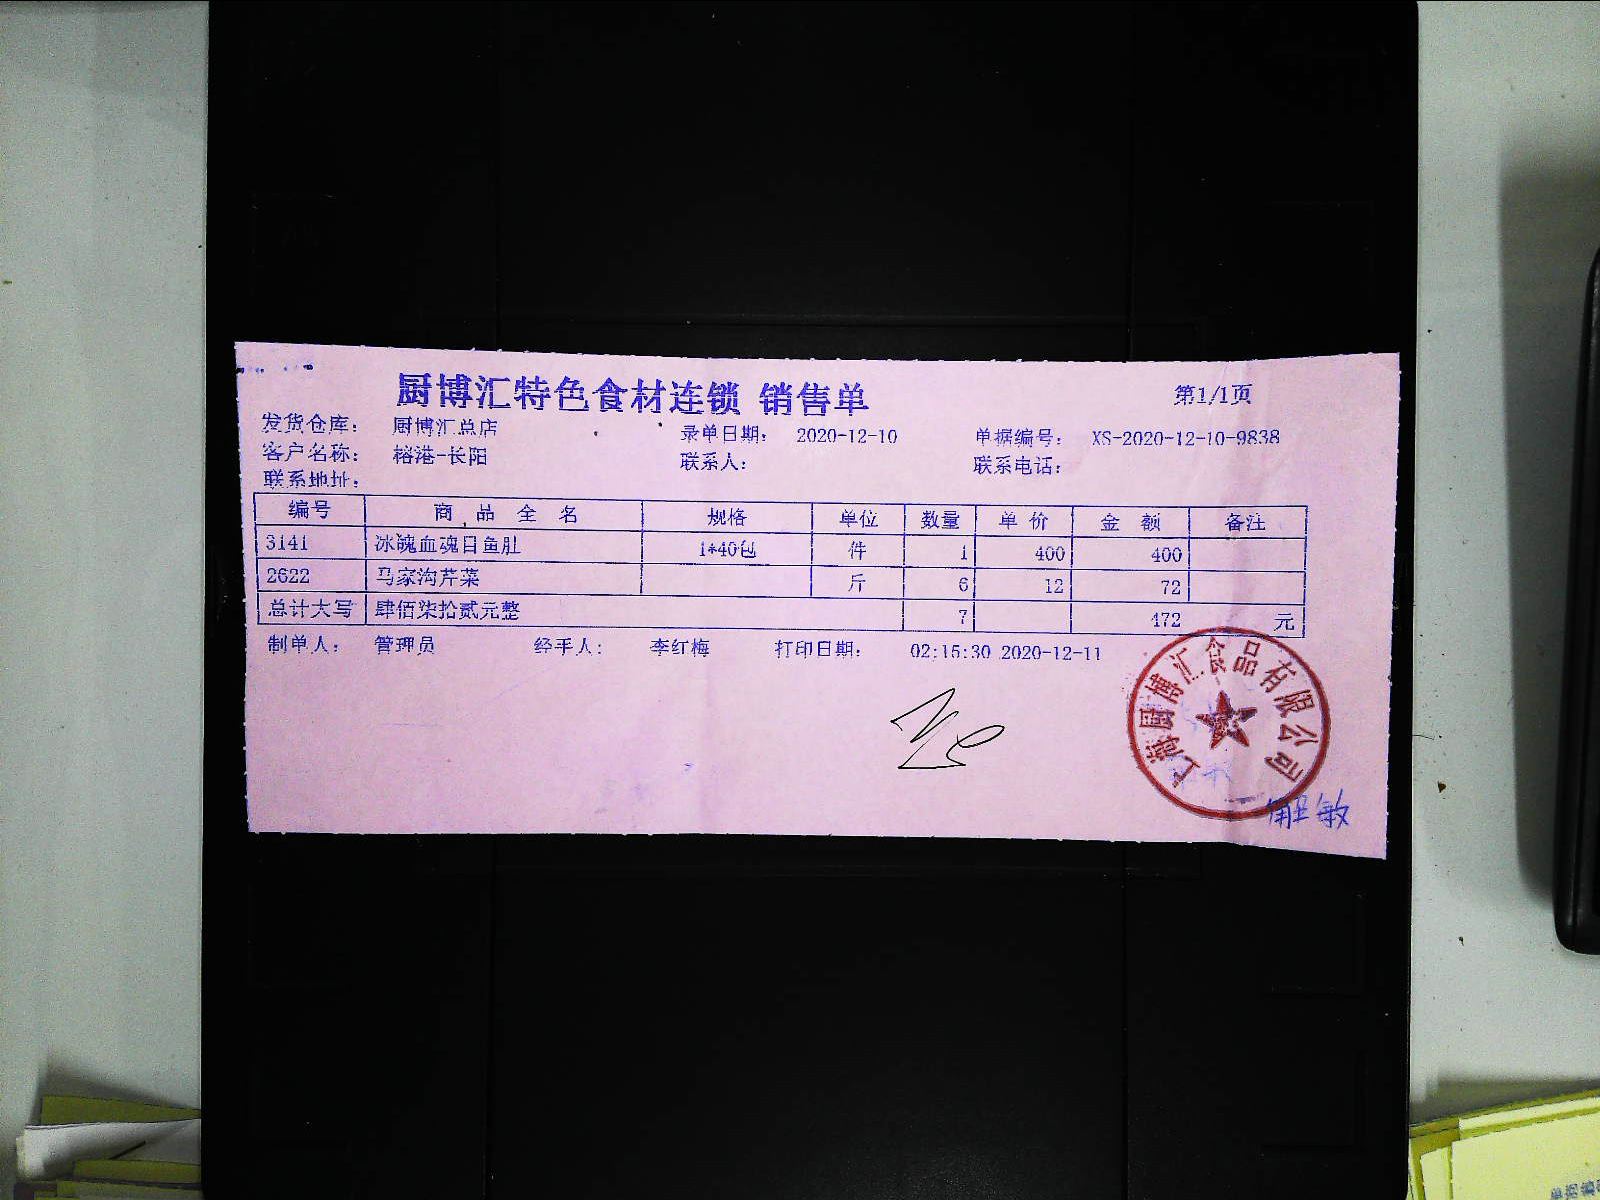 厨博汇特色食材连锁 销售单 第1/1页
发货仓库： 厨博汇总店 录单日期： 2020-12-10 单据编号： XS-2020-12-10-9838
客户名称： 榕港-长阳 联系人： 联系电话：
联系地址：
编号 商品全名 规格 单位 数量 单价 金额 备注
3141 冰魄血魂目鱼肚 1*40包 件 1 400 400
2622 马家沟芹菜 斤 6 12 72
总计大写 肆佰柒拾贰元整 7 472 元
制单人： 管理员 经手人： 李红梅 打印日期： 02:15:30 2020-12-11
上海厨博汇食品有限公司
敏